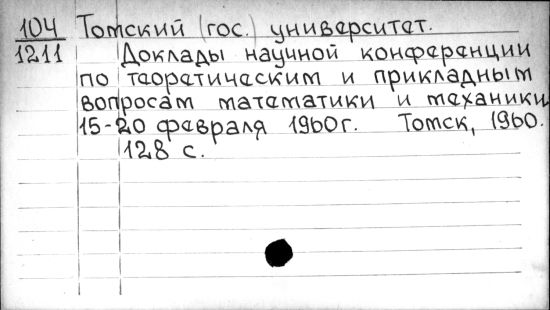 104 Томский (гос.) университет.
1211 Доклады научной конференции
по теоретическим и прикладным
вопросам математики и механики
15-20 февраля 1960г. Томск, 1960.
128 с.